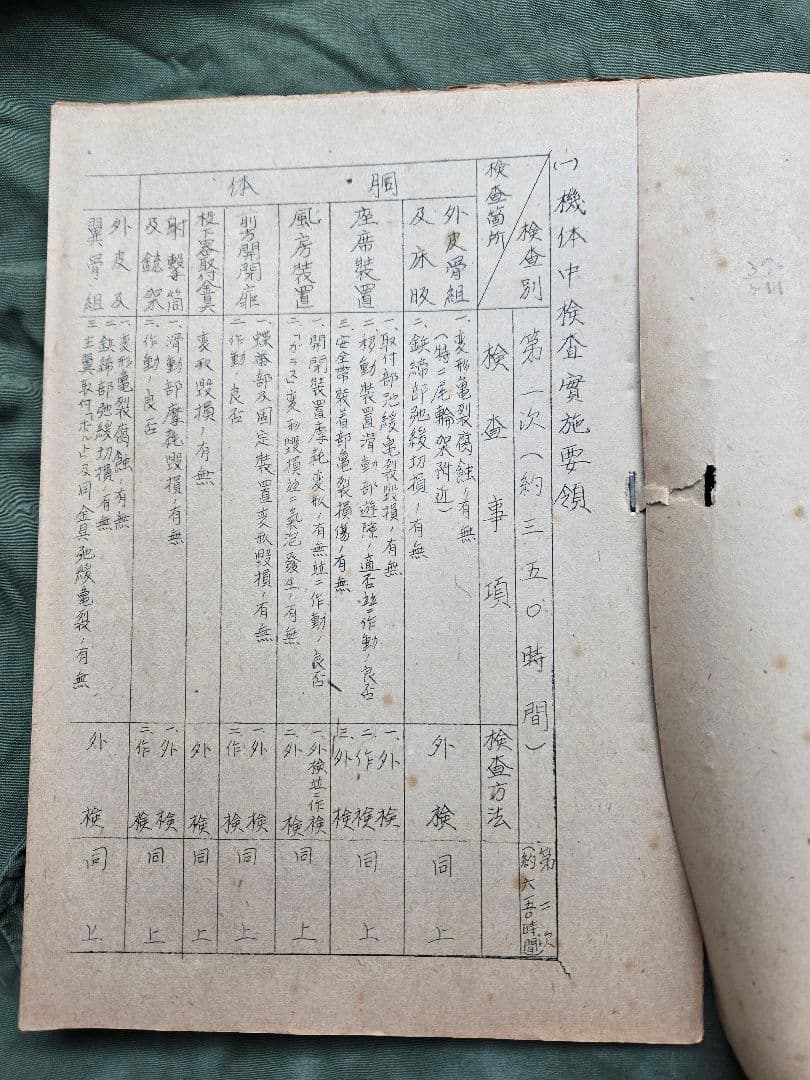 (一)機体中検査実施要領
検査別
検査箇所
第一次(約三五〇時間)
検査事項
検査方法
第二次
(約六五〇時間)
胴体
外皮骨組
及床版
一、変形亀裂腐蝕ノ有無
(特ニ尾輪架附近)
二、鋲締部弛緩切損ノ有無
外検
同上
座席装置
一、取付部弛緩亀裂毀損ノ有無
二、移動装置滑動部遊隙ノ適否並ニ作動ノ良否
三、安全帯装着部亀裂損傷ノ有無
一、外検
二、作検
三、外検
同上
風房装置
一、開閉装置摩耗変形ノ有無並ニ作動ノ良否
二、「ガラス」変形毀損並ニ気泡発生ノ有無
一、外検並ニ作検
二、外検
同上
前方開閉扉
一、蝶番部及固定装置変形毀損ノ有無
二、作動ノ良否
一、外検
二、作検
同上
投下器取付金具
変形毀損ノ有無
外検
同上
射撃筒
及銃架
一、滑動部摩耗毀損ノ有無
二、作動ノ良否
一、外検
二、作検
同上
外皮及
翼骨組
一、変形亀裂腐蝕ノ有無
二、鋲締部弛緩切損ノ有無
三、主翼取付「ボルト」及同金具弛緩亀裂ノ有無
外検
同上